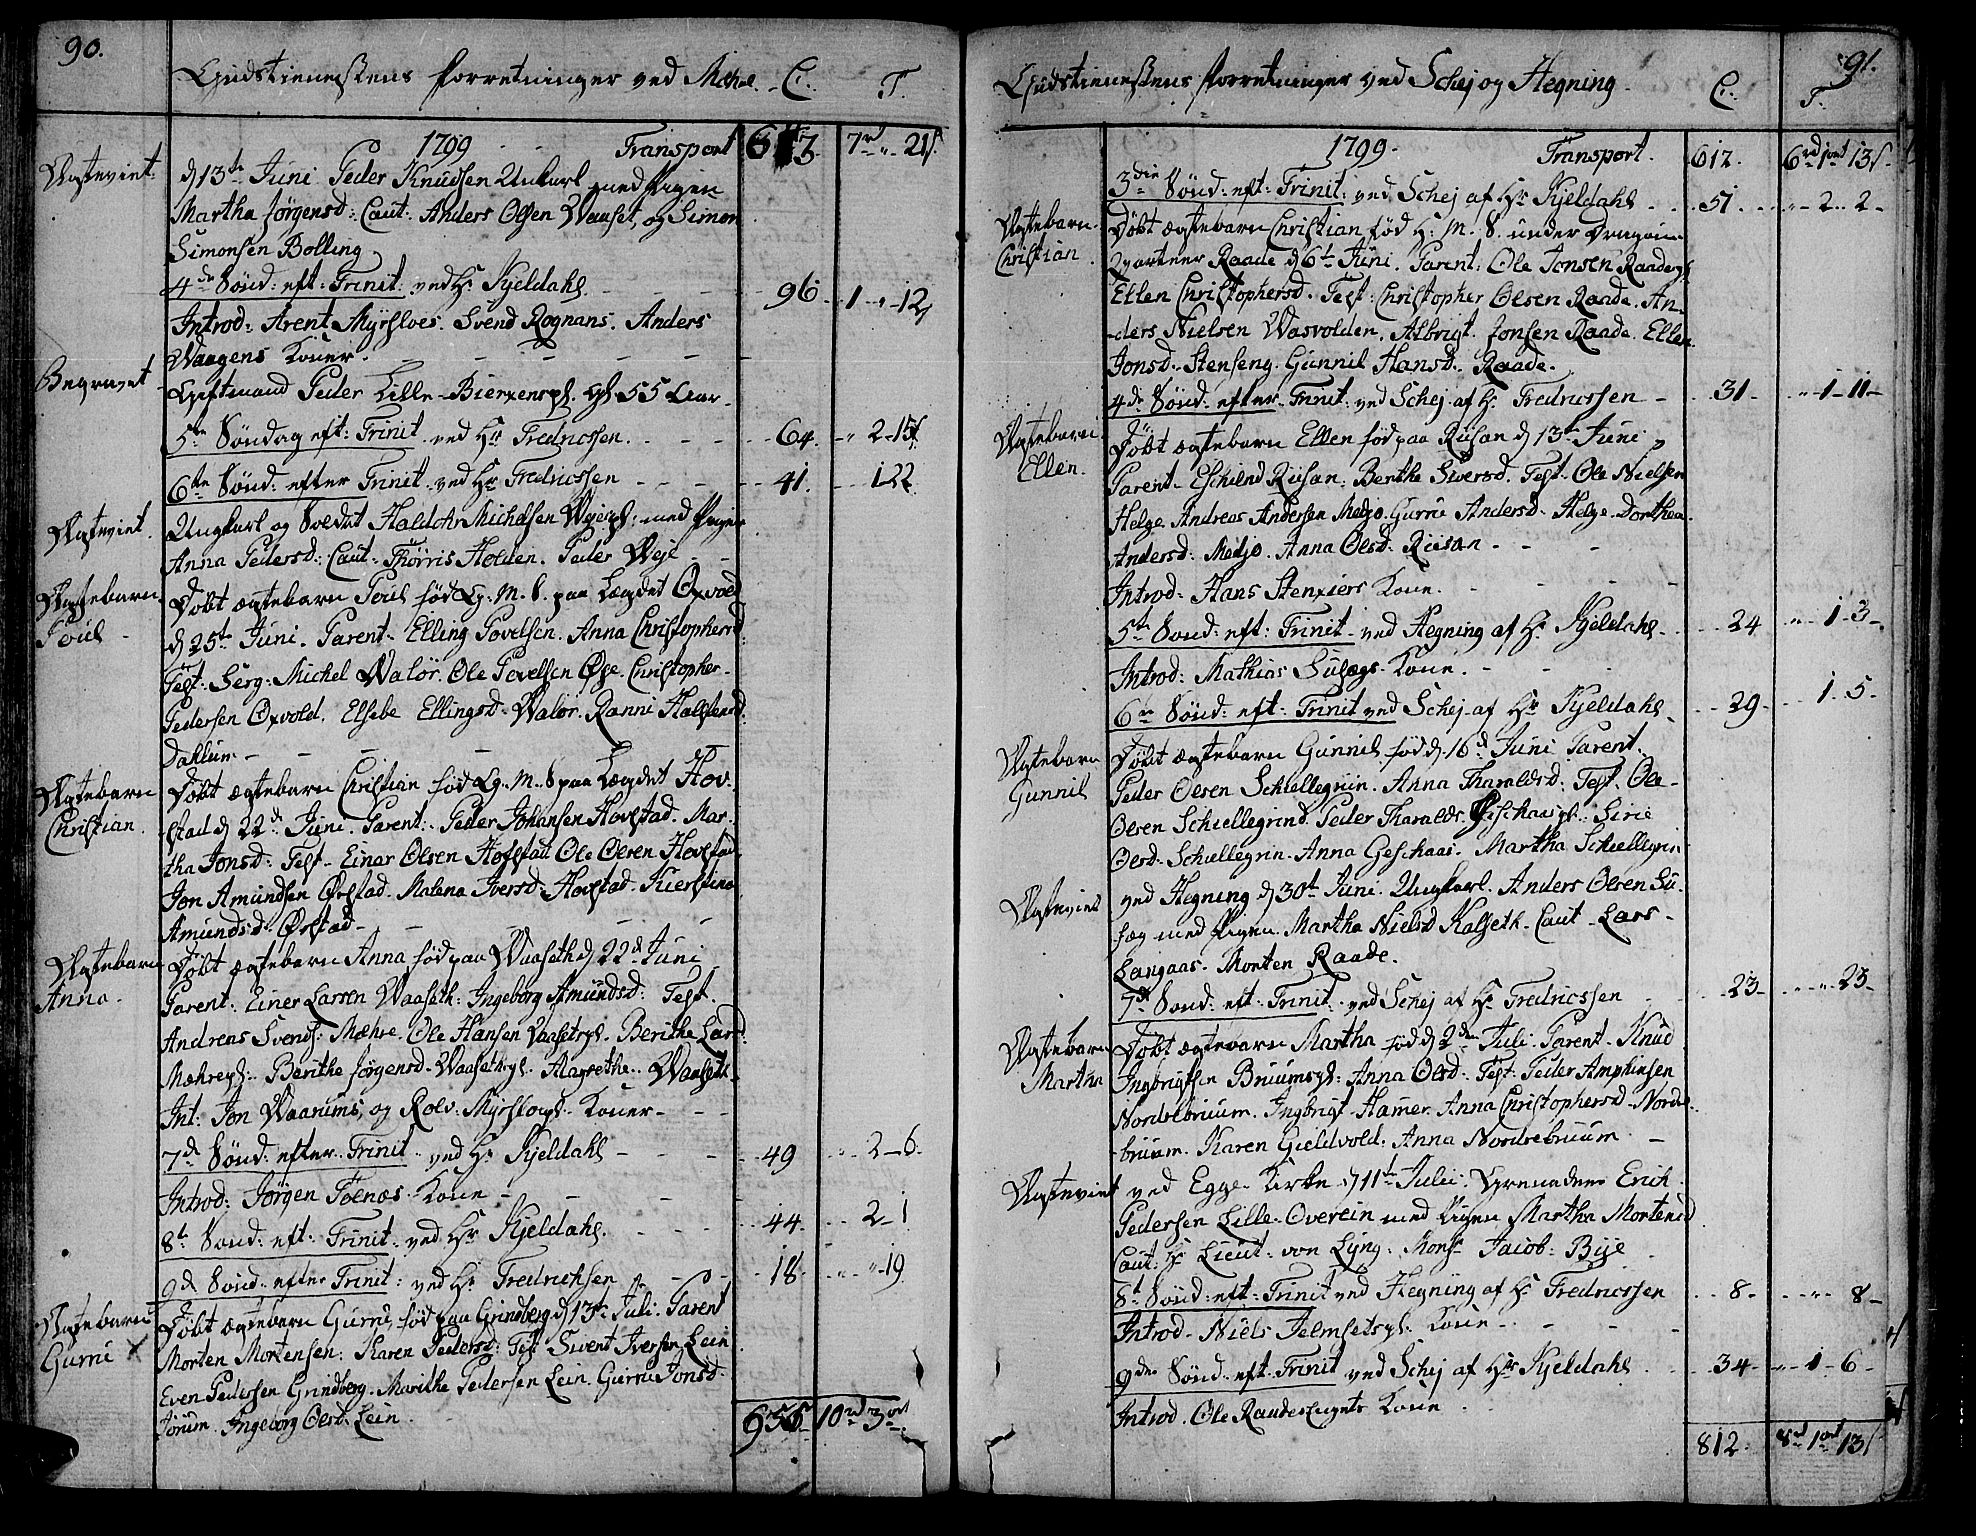 90.
Gudstienestens forretninger ved Mehre. C. T.
1799 Transport 613 7rd " 21s
Ægteviet. d 13de Juni Peder Knudsen Unkarl med Pigen
Martha Jørgensd: Caut: Anders Olsen Waaset, og Simon
Simonsen Bolling
4de Sønd: eft: Trinit: ved Hr Kjeldahl 96 1 " 12
Introd: Arent Myrsloes. Svend Rognans. Anders
Waagens Koner.
Begravet Giftmand Peder Lille-Bierxenspl. gl: 55 Aar
5te Søndag eft: Trinit ved Hr Fredricssen. 64. " 2 15
6te Sønd: efter Trinit ved Hr Fredricssen 41. 1 22
Ægteviet. Ungkarl og Soldat Haldohr Michelsen Wejespl: med Pigen
Anna Pedersd: Caut: Thørris Holden. Peder Weje
Ægtebarn Poul Døbt ægtebarn Poul fød G. M. S. paa Lægdet Oxvold
d 25te Juni. Parent. Elling Povelsen. Anna Christophersd
Test: Serg: Michel Walør. Ole Povelsen Øse. Christopher
Pedersen Oxvold. Elsebe Ellingsd. Walør. Ranni Halstensd.
Dahlum.
Ægtebarn Christian. Døbt ægtebarn Christian fød G. M. S paa Lægdet Hov-
stad d 22d Juni. Parent: Peder Johansen Hovstad. Mar-
tha Jonsd: Test. Einar Olsen Hofstad Ole Olsen Hovstad
Jon Amundsen Ørstad. Malena Iversd: Hovstad. Kierstina
Amundsd: Ørstad
Ægtebarn Anna. Døbt ægtebarn Anna fød paa Waaseth d 22d Juni
Parent: Einer Larsen Waaseth: Ingeborg Amundsd: Test.
Andreas Svends: Mæhre. Ole Hansen Vaasetspl. Berithe Larsd.
Mæhrepl: Berithe Jørgensd. Waasethspl. Magrethe. Waaseth
Int: Jon Waarums, og Rolv: Myrstopl. Koner
7d Sønd: efter Trinit ved Hr Kjeldahl 49 2 6.
Introd: Jørgen Toenæs Kone
8t Sønd: eft: Trinit: ved Hr Kjeldahl. 44 2 1
9d Sønd: efter Trinit: ved Hr Fredrichsen 18 " 19
Ægtebarn Gurru Døbt ægtebarn Gurru, fød paa Grindberg d 13te Juli. Parent
Morten Mortensen: Karen Pedersd: Test Sivert Iversen Lein
Even Pedersen Grindberg. Marithe Pedersen Lein. Gurru Jonsd
Jørum. Ingeborg Olsd: Lein. 955 10rd 3ort
91.
Gudstienestens forretninger ved Schej og Hegning C. T.
1799. Transport. 612. 6rd 1ort 13s
3die Sønd: eft: Trinit: ved Schej af Hr Kjeldahl 51 " 2 2
Ægtebarn Christian. Døbt ægtebarn Christian fød G: M. S. under Dragon
Qvarteer Raade d 6te Juni. Parent: Ole Jonsen Raadespl
Ellen Christophersd. Test: Christopher Olsen Raade. An-
ders Nielsen Wasvolden. Albrigt Jonsen Raade. Ellen
Jonsd. Stenseng. Gunnil Hansd. Raade.
4de Sønd: efter Trinit ved Schej af Hr Fredricssen 31 1 11
Ægtebarn Ellen. Døbt ægtebarn Ellen fød paa Riisan d 13te Juni
Parent Eschild Riisan: Berithe Siversd. Test. Ole Nielsen
Helge Andreas Andersen Medjo. Gurru Andersd. Helge. Dorthea
Andersd: Medjo. Anna Olsd. Riisan
Introd: Hans Stenxiers Kone.
5te Sønd: eft: Trinit: ved Hegning af Hr Kjeldahl 24 1 3
Introd: Mathias Sulægs Kone.
6te Sønd: eft: Trinit ved Schej af Hr Kjeldahl 29 1 5
Ægtebarn Gunnil Døbt ægtebarn Gunnil fød d 16d Juni Parent.
Peder Olsen Schiellegrin. Anna Tharaldsd: Test. Ole
Olsen Schiellegrind Peder Tharalds. Geschaaspl: Siri
Olsd. Schiellegrin. Anna Geschaas. Martha Schiellegrin
Ægteviet ved Hegning d 30te Juni. Ungkarl. Anders Olsen Su-
læg med Pigen Martha Nielsd Kalseth. Caut. Lars
Langaas. Morten Raade.
7d Sønd: eft: Trinit: ved Schej af Hr Fredricssen 23 " 23
Ægtebarn Martha Døbt ægtebarn Martha fød d 2den Juli. Parent. Knud
Ingbrigtsen Bruumspl: Anna Olsd: Test: Peder Amphinsen
Nordrebruum. Ingbrigt Hamer. Anna Christophersd Nordre-
bruum. Karen Gieldvold. Anna Nordrebruum.
Ægteviet ved Egge Kirke d 11te Julii Grenadeer Erich
Pedersen Lille-Overein med Pigen Martha Mortensd
Caut: Hr Lieut: von Lyng: Monsr Jacob: Bye
8t Sønd: eft: Trinit ved Hegning af Hr Fredricssen 8 " 8
Introd. Niels Jelmsetspl. Kone
9de Sønd: eft: Trinit ved Schej af Hr Kjeldahl 34 1 6
Introd. Ole Raades Kone.
812. 8rd 1ort 13s